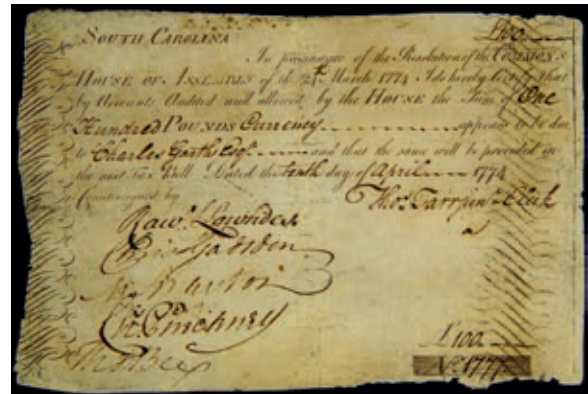 £100
SOUTH CAROLINA
In pursuance of the Resolution of the COMMONS
HOUSE OF ASSEMBLY of the 24th March 1774 I do hereby Certify that
by Accounts Audited and allowed by the HOUSE the Sum of One
Hundred POUNDS Currency appears to be due
to Charles Garth Esqr. and that the same will be provided in
the next Tax Bill. Dated the tenth day of April 1774
Countersigned by
Thos. Farr junr. Clerk
Raws. Lowndes
Chris Gadsden
Chs. Pinckney
£100
No. 1777